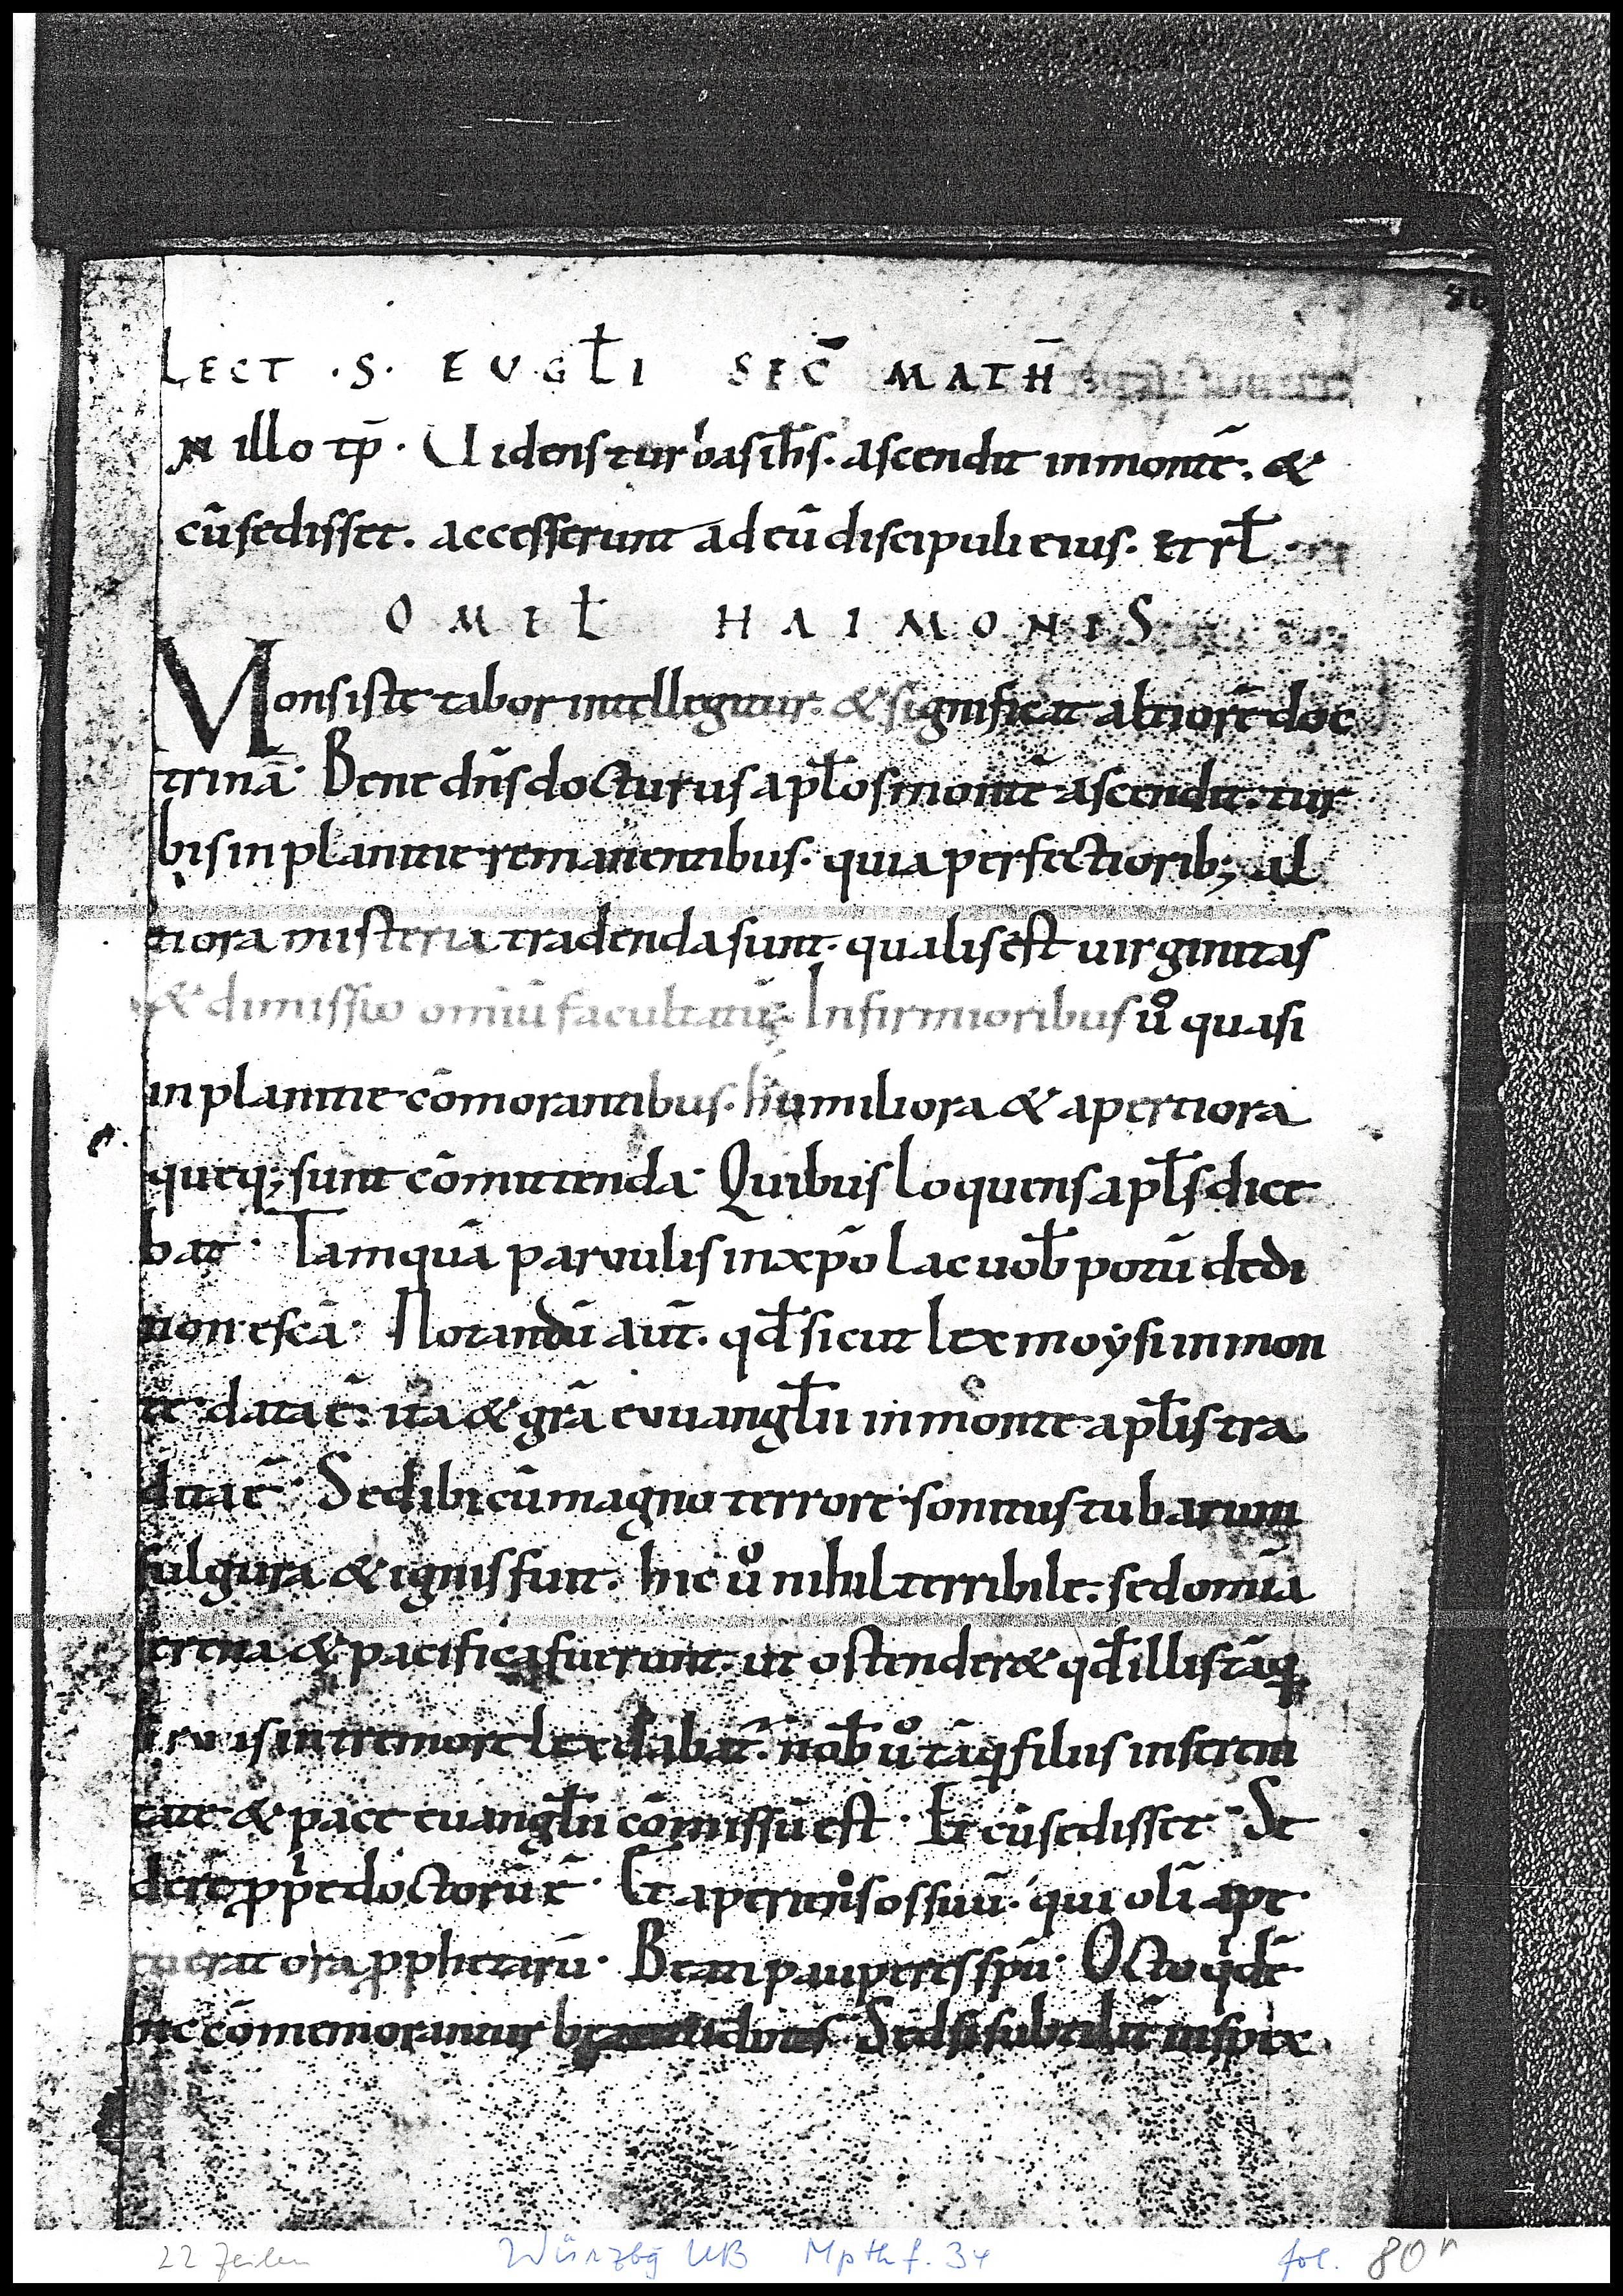 LECT · S · EVGŁI SEC̄ MATH̄
N illo tp̄ · Uidens turbas ih̄s · ascendit in montē · &
cū sedisset · accesserunt ad eū discipuli eius · et rł ·
OMIŁ HAIMONIS
Mons iste tabor intellegitur · & significat altiorē doc
trinā · Bene dn̄s docturus apłos montē ascendit · tur
bis in planitie remanentibus · quia perfectiorib; al
tiora misteria tradenda sunt · qualis est uirginitas
& dimissio omiū facultatū · Infirmioribus ůo quasi
in planitie cōmorantibus · humiliora & apertiora
queq; sunt cōmittenda · Quibus loquens apłs dice
bat · Tamquā parvulis in xp̄o lac uob̄ potū dedi
non escā · Notandū aūt · qđ sicut lex moysi in mon
te data ē · ita & grā evuangłii in monte apłis tra
dita ē · Sed ibi cū magno terrore sonitus tubarum
fulgura & ignis fuit · hic ůo nihil terribile · sed omīa
serena & pacifica fuerunt · ut ostender& qđ illis tāq
servis in tremore lex dabat̄ · nob̄ ůo tāq filiis in sereni
tate & pace euangłii cōmissū est · Et cū sedisset · Se
dere p̱pe doctorū ē · Et aperiens os suū · qui olī ape
ruerat ora p̱phetarū · Beati pauperes spū · Octo qdē
hic cōmemorantur beatitudines · Sed si subtilit̄ inspex
22 Zeilen Würzbg UB Mpth f. 34 fol. 80r